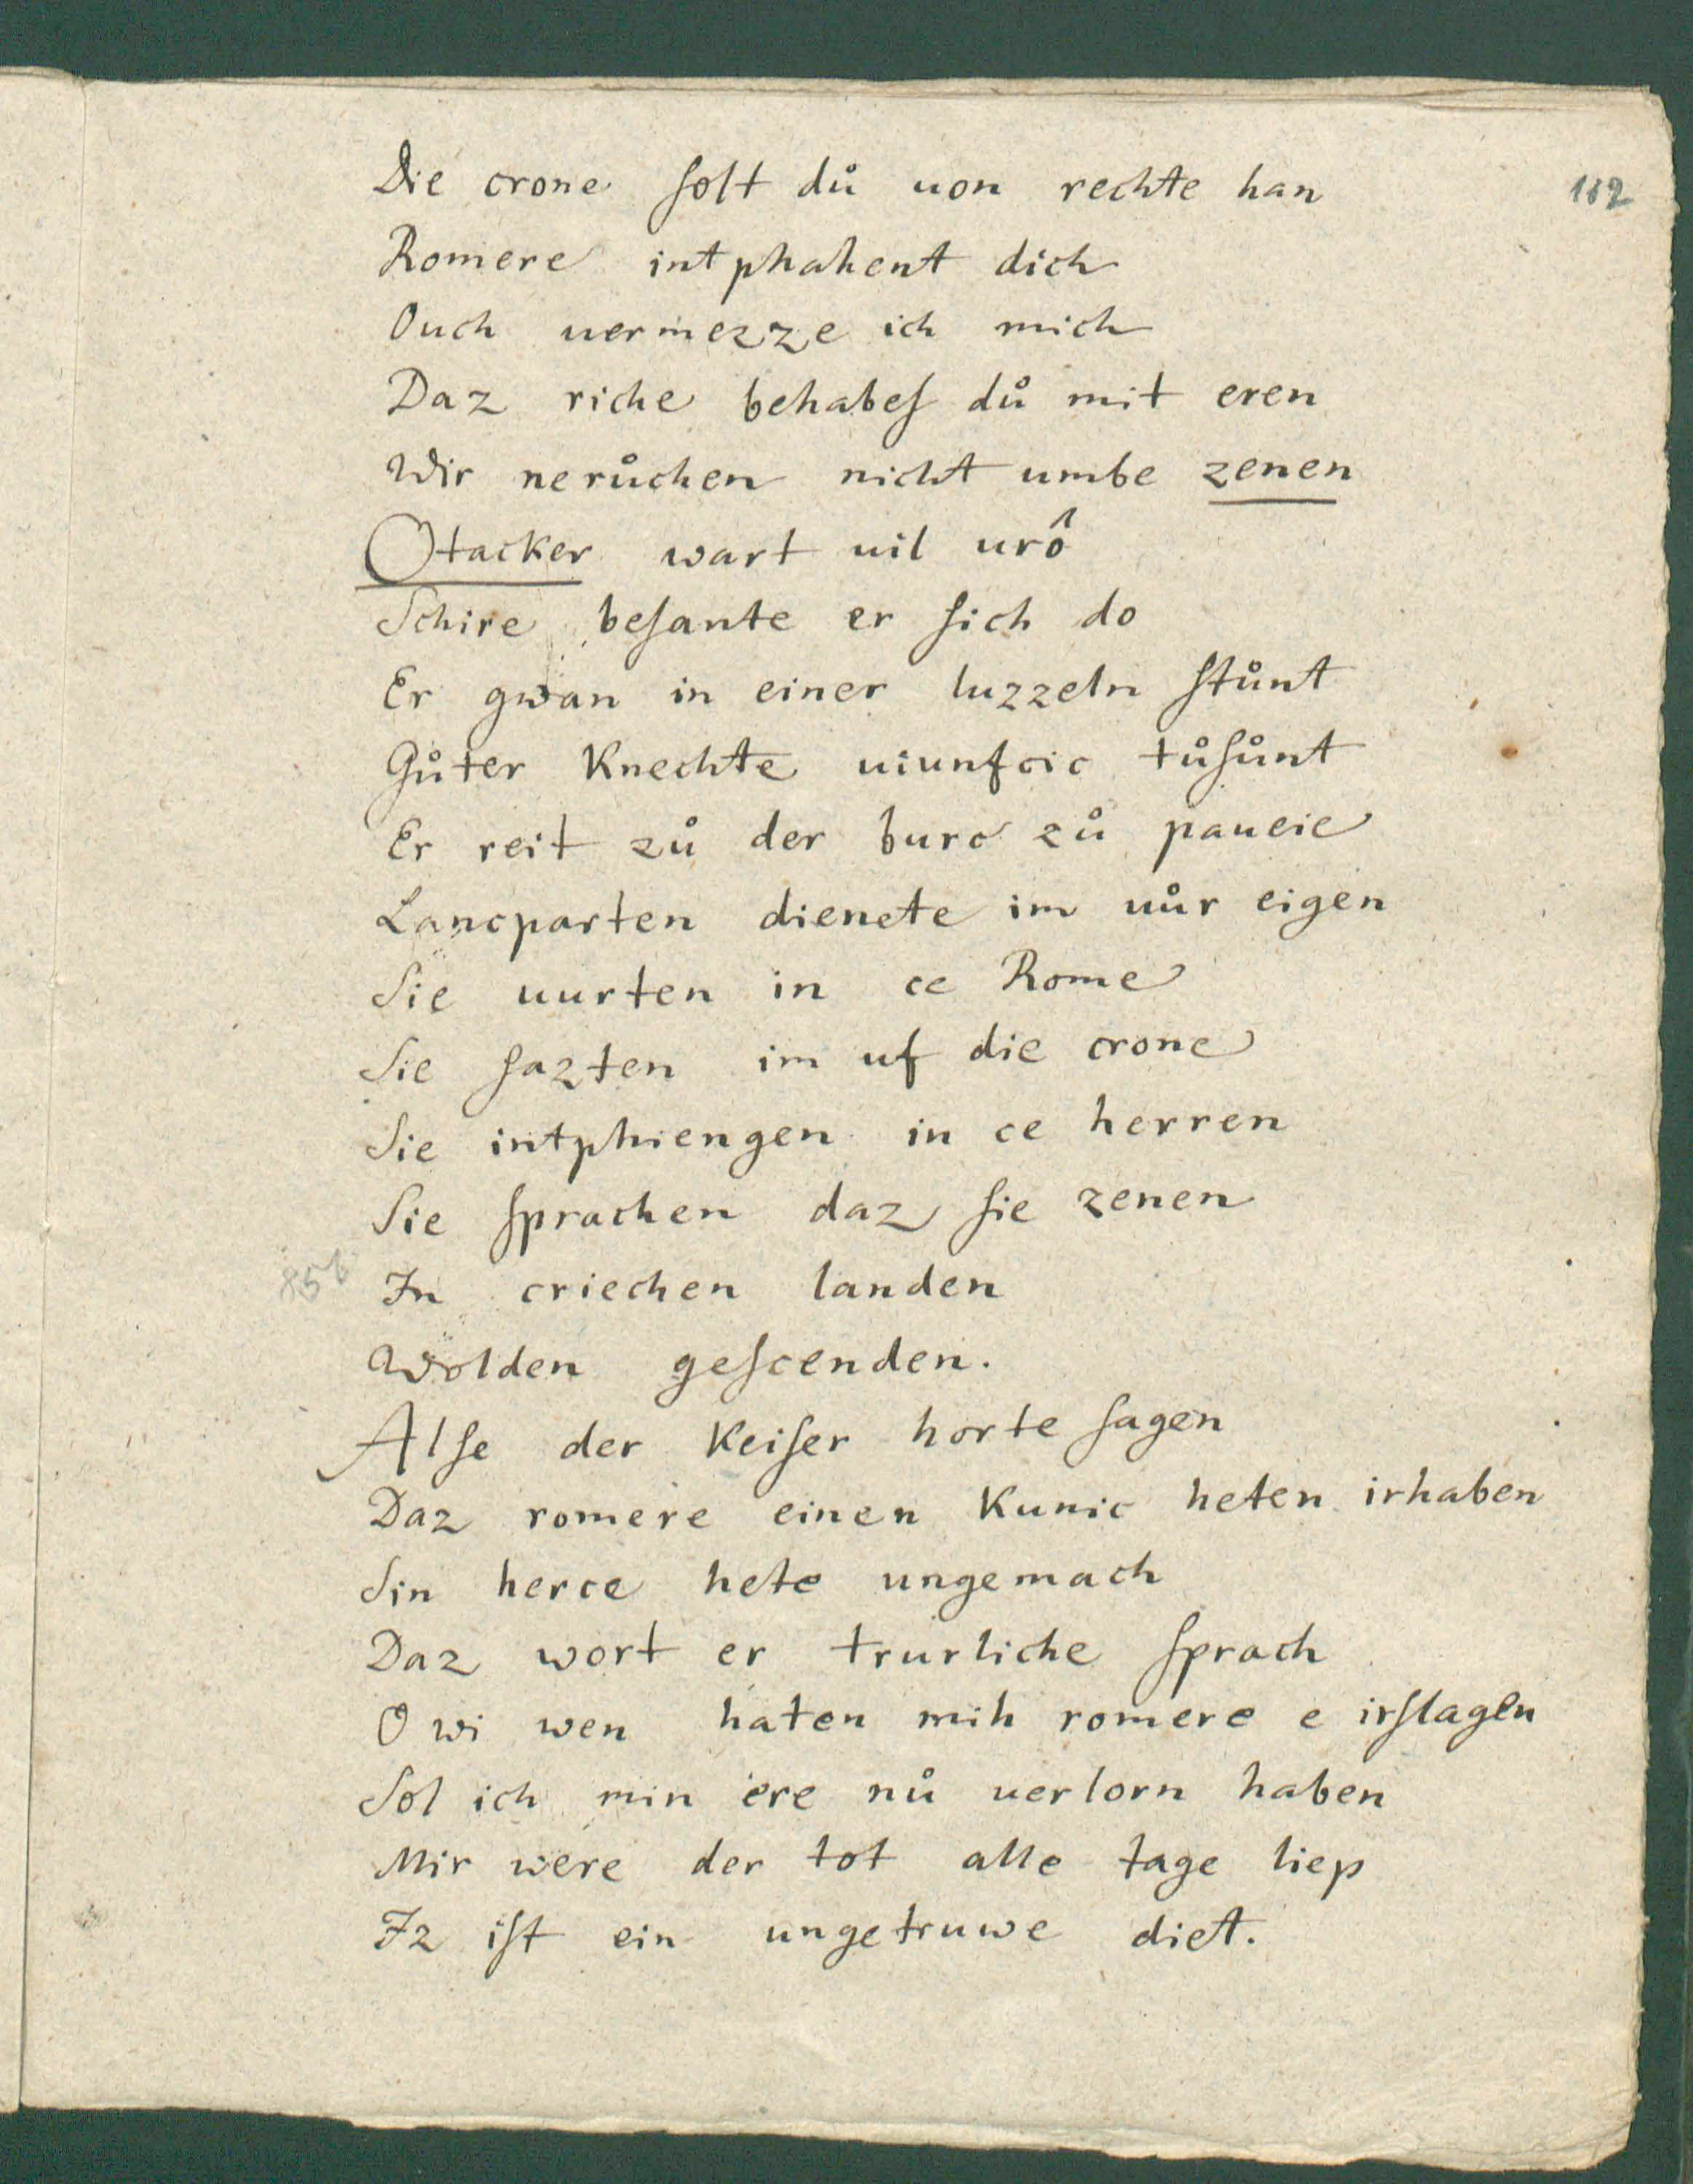 Die crone ſolt důͦ uon rechte han
112
Romere intphahent dich
Ouch uermezze ich mich
Daz riche behabeſ dů mit eren
Wir nerůchen nicht umbe zenen
Otacker wart uil urô
Schire beſante er ſich do
Er gwan in einer luzzeln ſtůnt
Gůter Knechte uiunfcic tůſůnt
Er reit zů der burc zů paueie
Lancparten dienete im uůr eigen
Sie uurten in ce Rome
Sie ſazten im uf die crone
Sie intphiengen in ce herren
Sie ſprachen daz ſie zenen
In criechen landen
Wolden geſcenden.
Alſe der Keiſer horte ſagen
Daz romere einen Kunic heten irhaben
Sin herce hete ungemach
Daz wort er trurliche ſprach
O wi wen haten mih romere e irſlagen
Sol ich min ere nů uerlorn haben
Mir were der tot alle tage liep
Iz iſt ein ungetruwe diet.